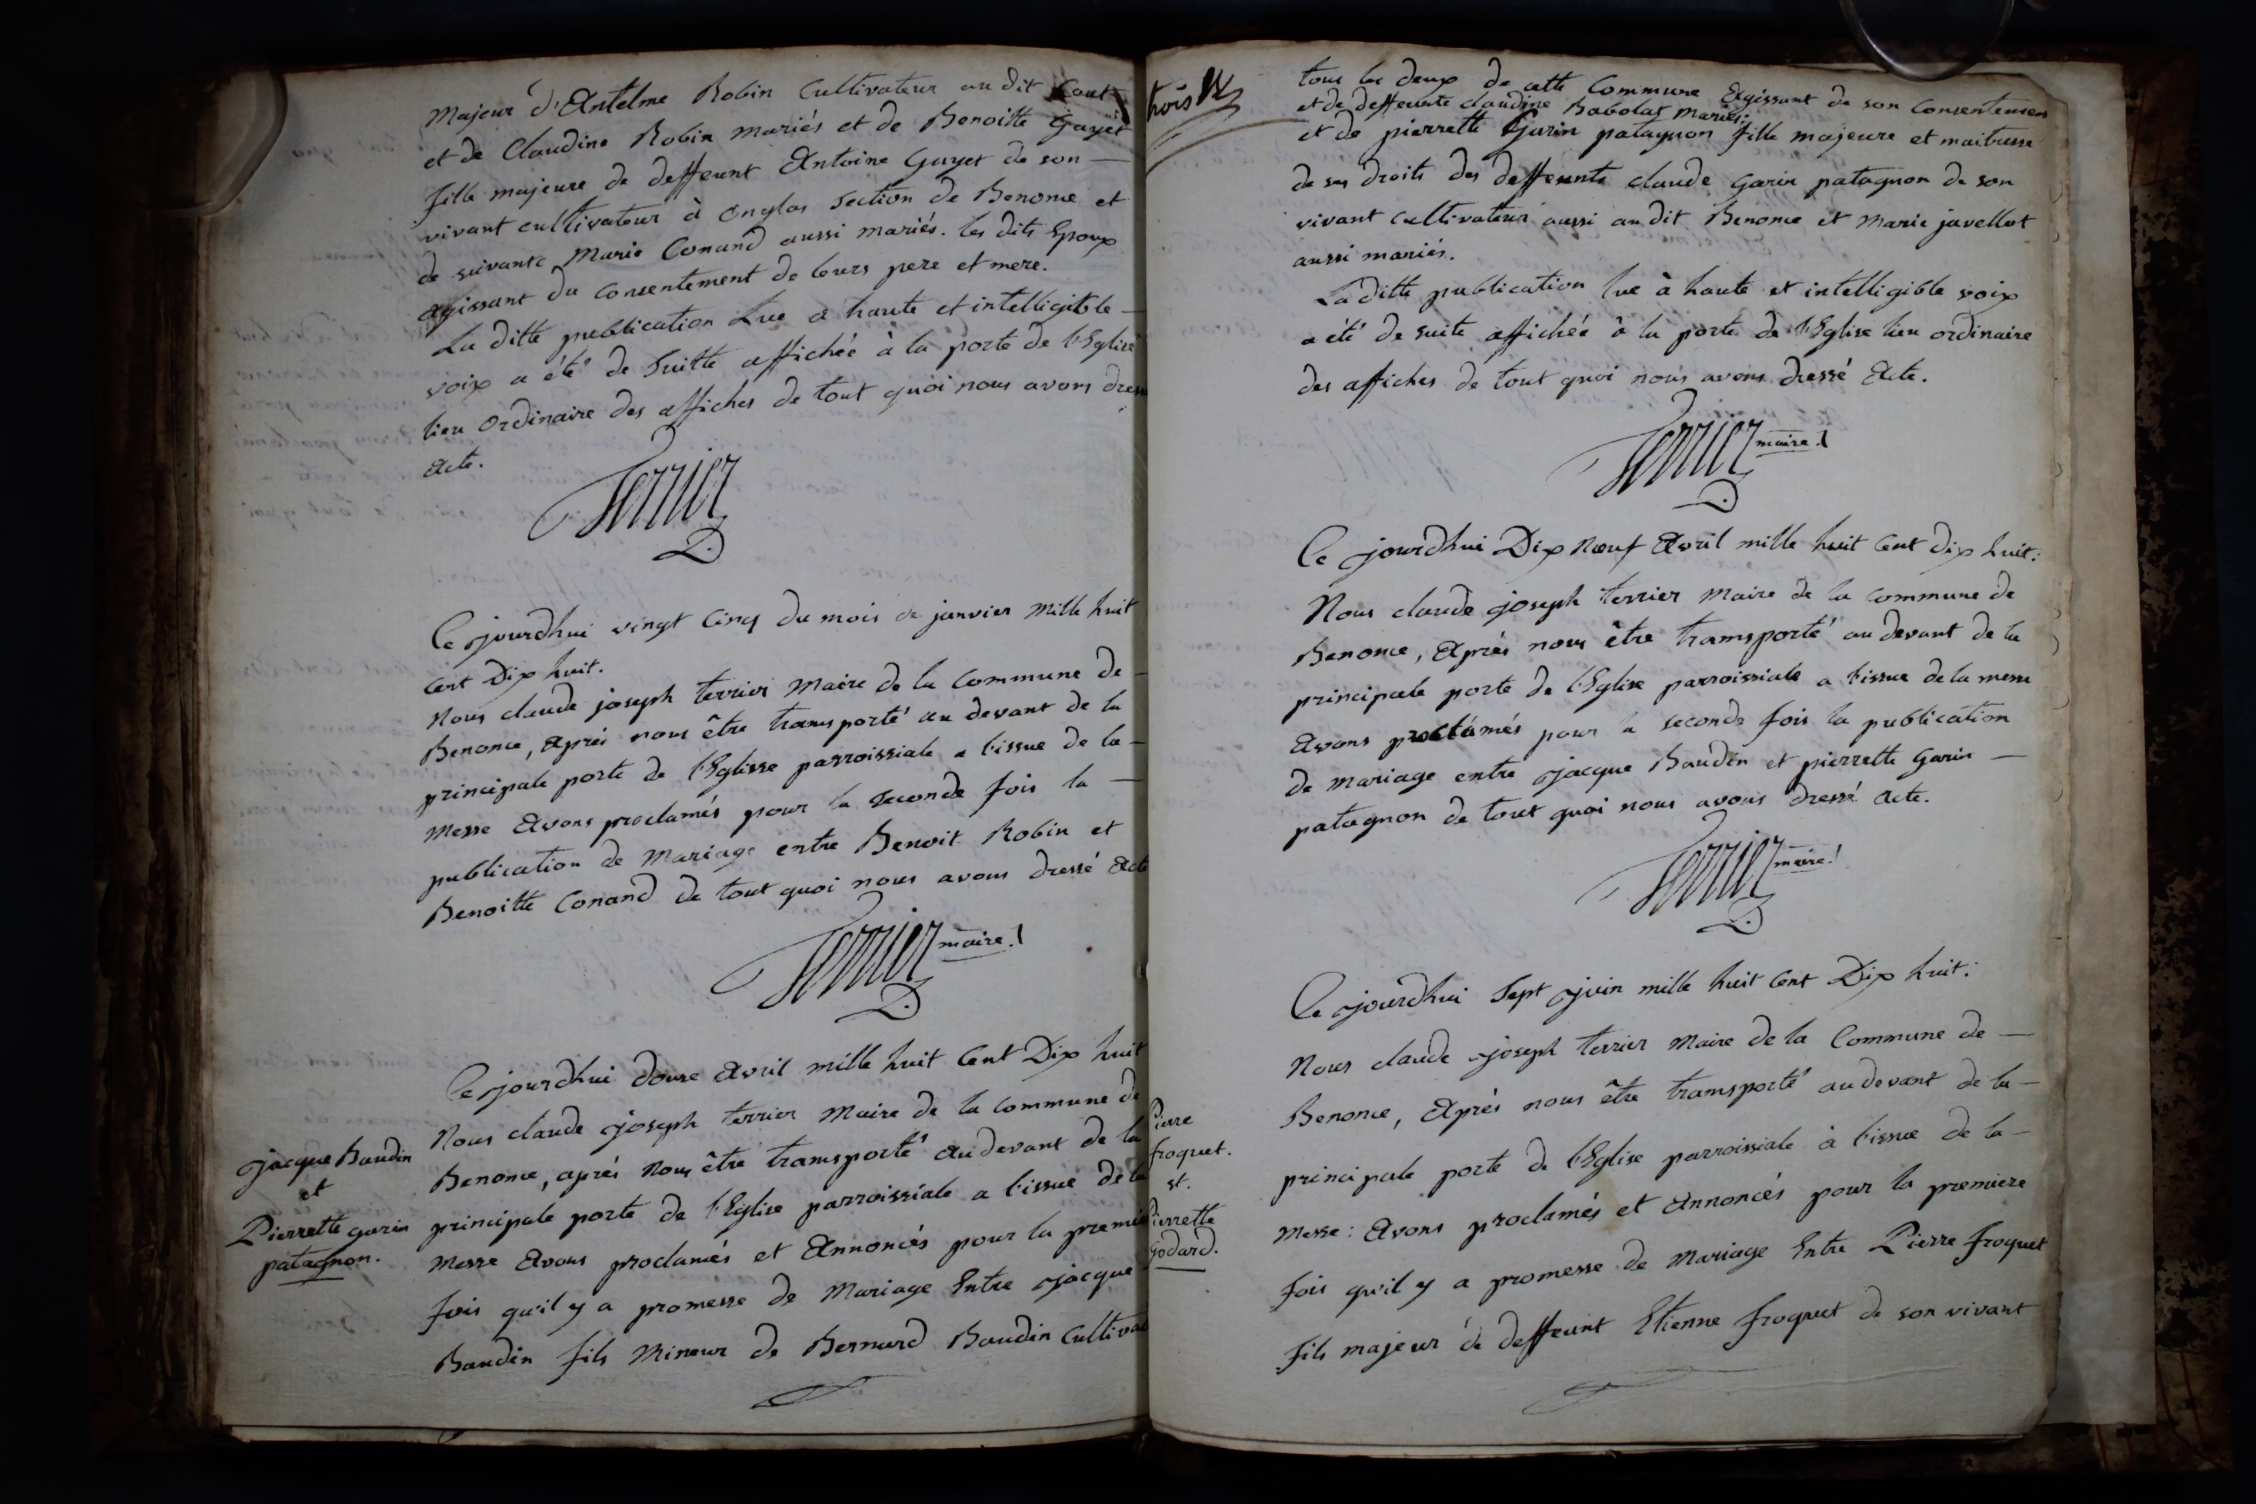 majeur d'Antelme Robin Cultivateur au dit
et de Claudine Robin mariés et de Benoitte Gayet
fille majeure de deffeunt Antoine Gayet de son
vivant cultivateur à onglas Section de Benonce et
de suivante Marie Conand aussi mariés. les dits Epoux
agissant du consentement de leurs pere et mere.
La ditte publication Lue a haute et intelligible
voix a été de Suitte affichée à la porte de l'Eglise
lieu Ordinaire des affiches de tout quoi nous avons dressé
Acte.
Terrier
Ce jourdhui vingt Cinq du mois de janvier mille huit
cent Dix huit.
Nous claude joseph terrier Maire de la Commune de
Benonce, Après nous être transporté au devant de la
principale porte de l'Eglisse parroissiale a l'issue de la
Messe Avons proclamés pour la seconde fois la
publication de Mariage entre Benoit Robin et
Benoitte Conand de tout quoi nous avons dressé Acte
Terrier maire
Ce jourdhui douse Avril mille huit Cent Dix huit
jacque Baudin
et
Pierrette garin
patagnon.
Nous claude joseph terrier Maire de la Commune de
Benonce, après Nous être transporté Au devant de la
principale porte de l'Eglise parroissiale a l'issue de la
Messe Avons proclamés et Annoncés pour la premie
fois qu'il y a promesse de Mariage Entre jacque
Baudin fils Mineur de Bernard Baudin Cultivat
trois
tous les deux de cette Commune Agissant de son Consentemen
et de deffeunte claudine Babolat mariés:
et de pierrette Garin patagnon fille majeure et maitresse
de ses droits des deffeunts claude Garin patagnon de son
vivant cultivateur aussi au dit Benonce et Marie javellot
aussi mariés.
La ditte publication lue à haute et intelligible voix
a été de suite affichée à la porte de l'Eglise lieu ordinaire
des affiches de tout quoi nous avons dressé Acte.
Terrier maire
Ce jourdhui Dix Neuf Avril mille huit Cent Dix huit:
Nous claude joseph terrier Maire de la Commune de
Benonce, Après nous être transporté au devant de la
principale porte de l'Eglise parroissiale a l'issue de la messe
Avons proclamés pour la seconde fois la publication
de mariage entre jacque Baudin et pierrette Garin
patagnon de tout quoi nous avons dressé Acte.
Terrier maire
Ce jourdhui Sept juin mille huit Cent Dix huit:
Pierre
froquet.
et.
Pierrette
Godard.
Nous claude joseph terrier Maire de la Commune de
Benonce, Après nous être transporté au devant de la
principale porte de l'Eglise parroissiale à l'issue de la
Messe: Avons proclamés et Annoncés pour la premiere
fois qu'il y a promesse de Mariage Entre Pierre froquet
fils majeur de deffeunt Etienne froquet de son vivant